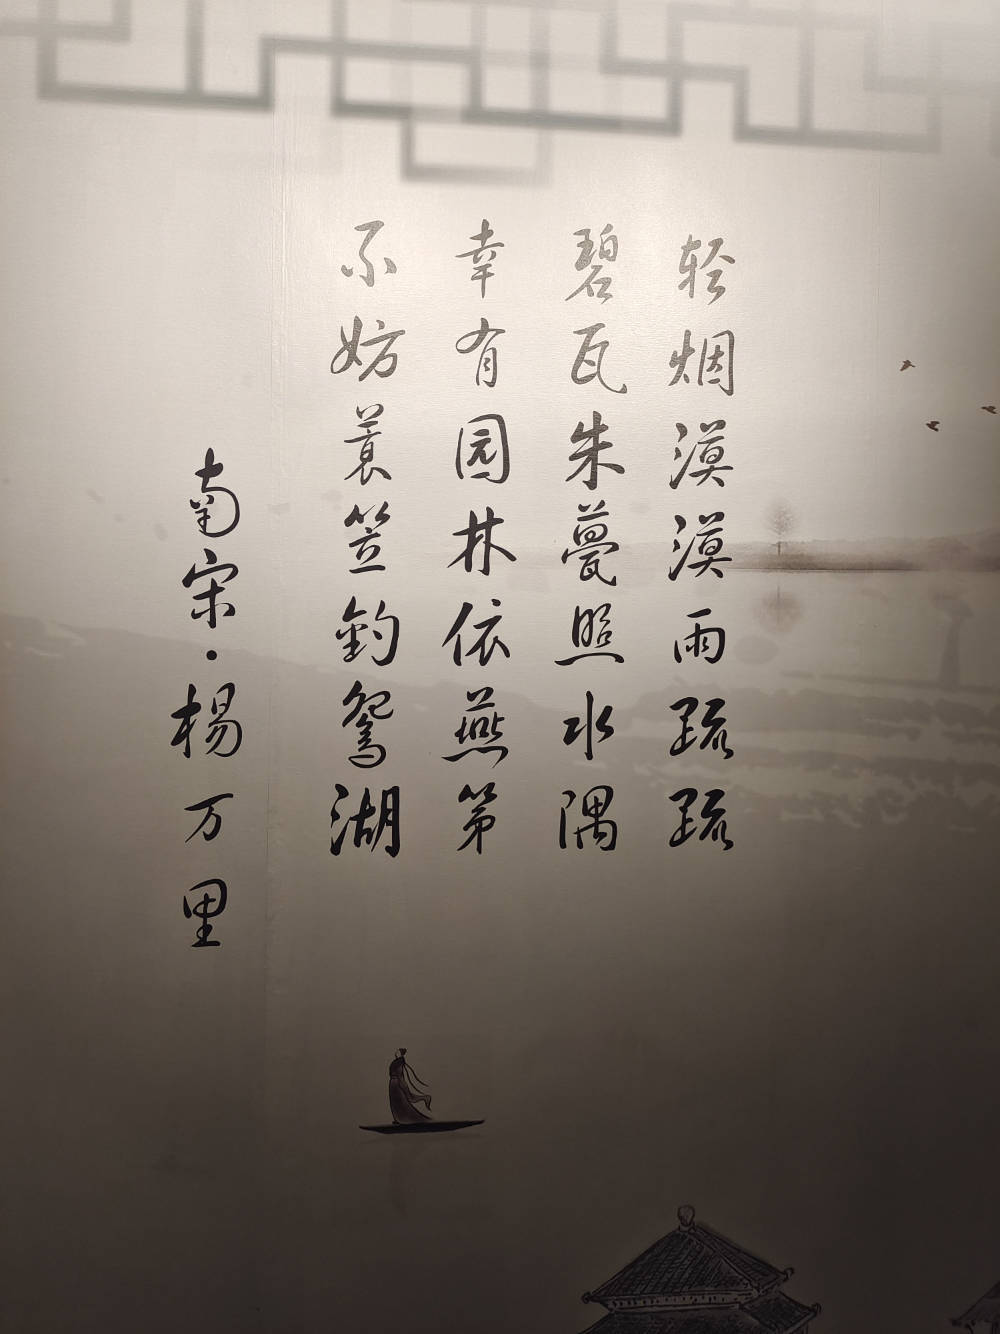 轻烟漠漠雨疏疏
碧瓦朱甍照水隅
幸有园林依燕第
不妨蓑笠钓鸳湖
南宋·杨万里